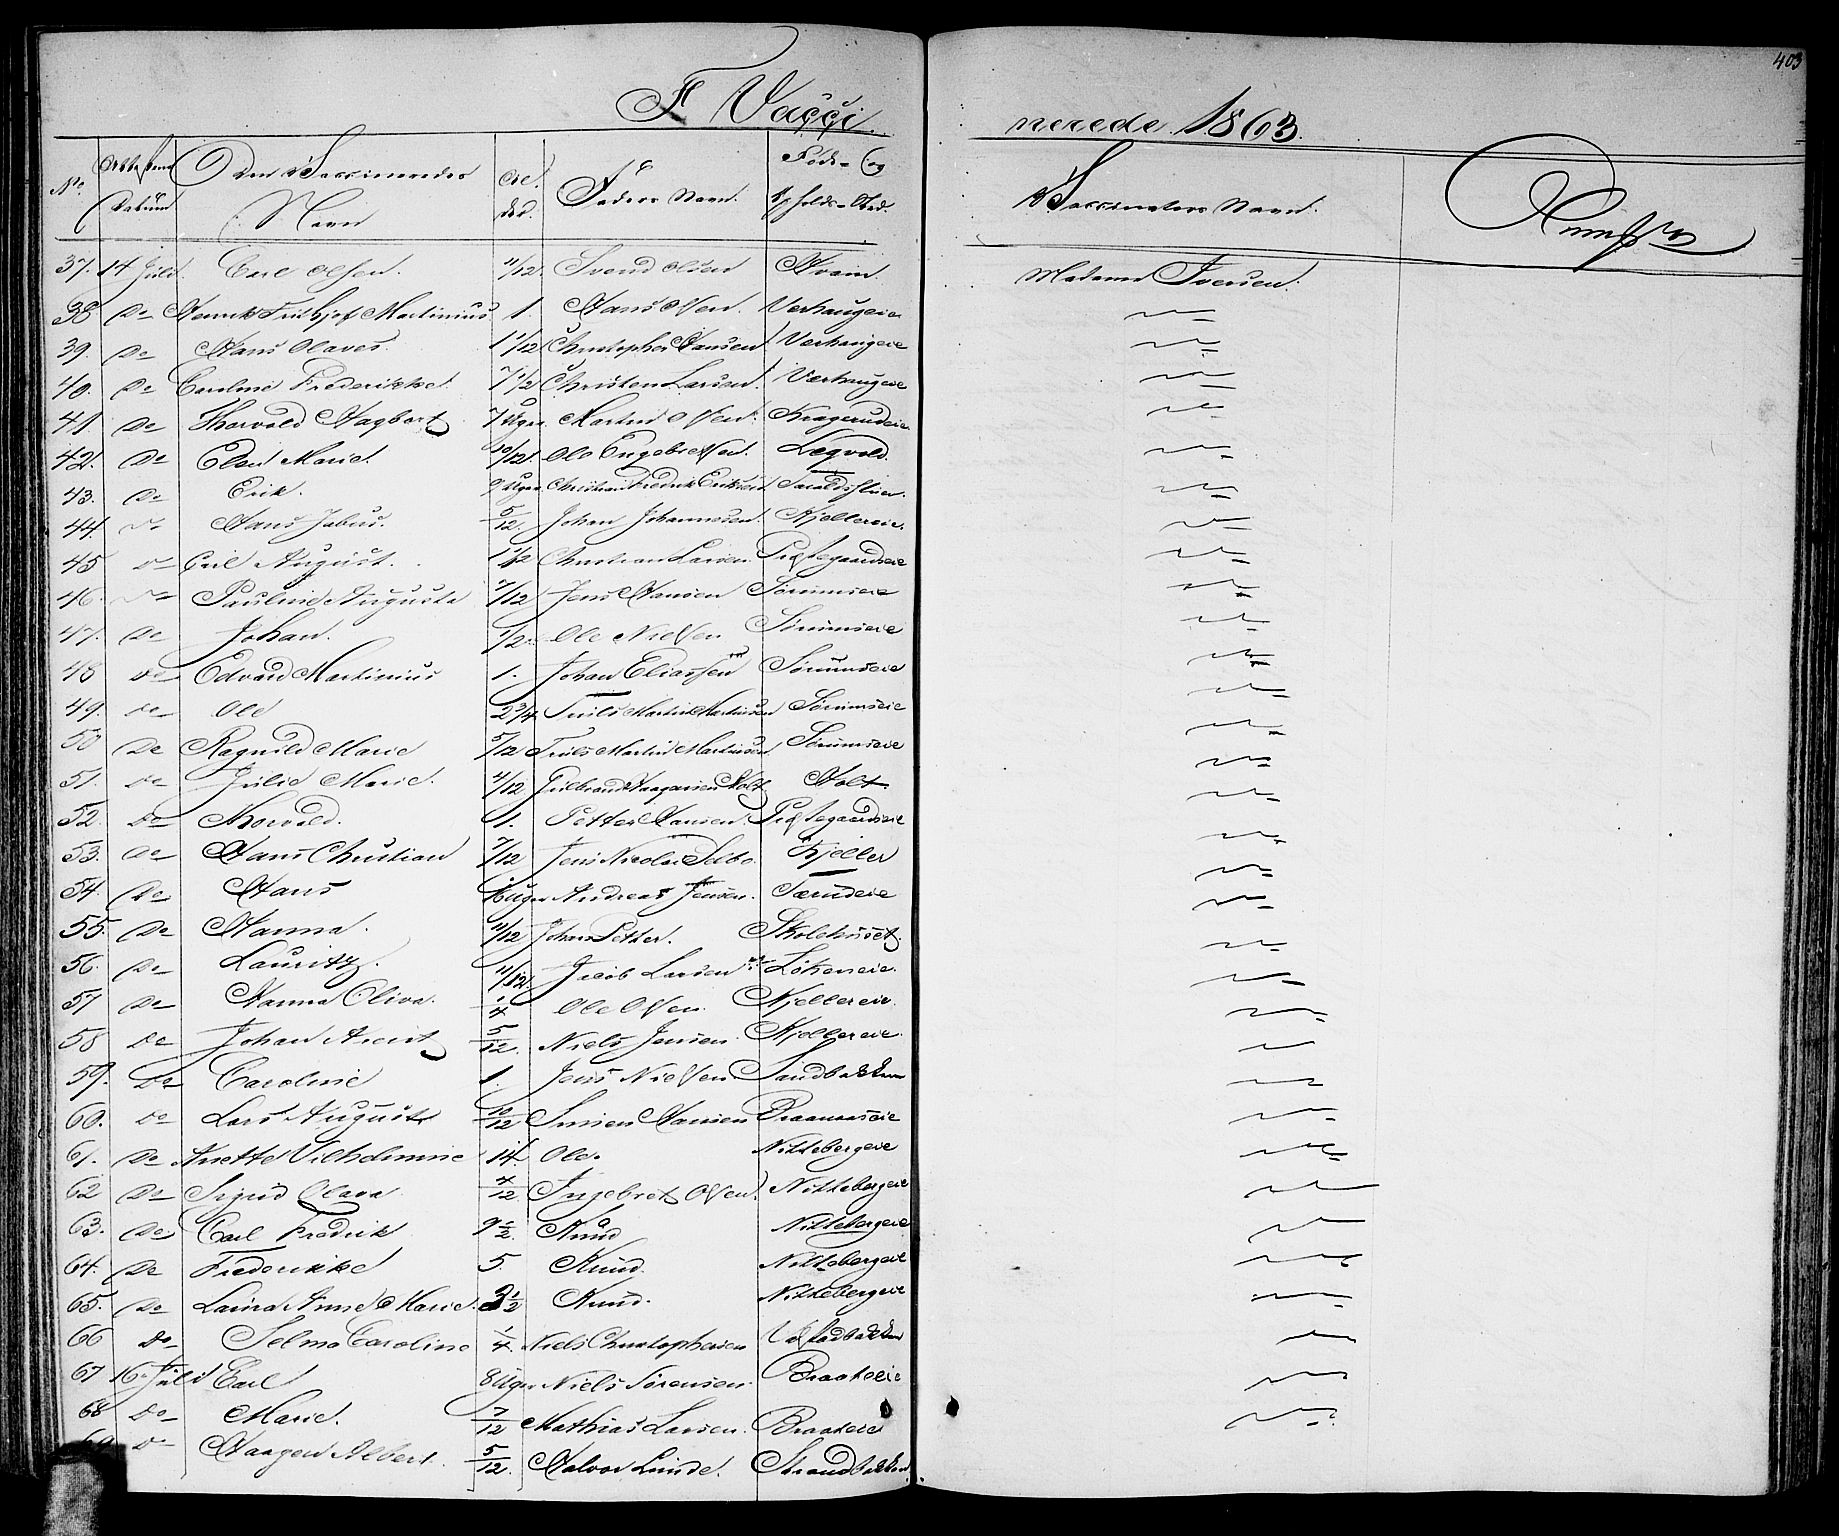 403
F Vacci nerede 1863.
No. Attestens Datum. Den Vaccineredes Navn Alder. Faders Navn. Føde- og Opholds-Sted. Vaccinators Navn.
37. 14 Juli. Carl Olsen. 11/12 Svend Olsen Hvam. Madame Iversen.
38 Do Henrik Frithjof Martinius 1. Hans Olsen. Værhaugeie
39. Do Hans Olaves. 1 11/12 Christopher Hansen Værhaugeie
40. Do Caroline Frederikke. 7 1/2 Christen Larsen. Værhaugeie
41 Do Thorvald Dagbart 7 Uger. Martin Olsen. Kragerudeie
42. Do Elen Marie. 10/12. Ole Engebretsen. Legvold.
43. Do Erik. 9 Uger. Christian Fredrik Eriksen
44. Do Hans Julius. 5/12. Johan Johannesen. Kjellereie.
45 Do Carl August. 1 1/2 Christian Larsen. Præstegaardseie
46. Do Pauline Augusta 7/12 Jens Hansen Sørumseie
47. Do Johan. 1/2. Ole Nielsen Sørumseie
48 Do Edvard Martinius 1. Johan Eliassen Sørumseie
49. Do Ole 2 3/4 Truls Martin Martinsen Sørumseie
50 Do Ragnild Marie 5/12 Truls Martin Martinsen Sørumseie
51. Do Julie Marie. 11/12 Gulbrand Haagensen Holt Holt.
52. Do Thorvald. 1. Petter Hansen. Præstegaardseie
53. Do Hans Christian 7/12 Jens Nicolai Selbo. Kjeller
54. Do Hans Uger Andreas Jensen. Tærudeie
55. Do Hanna. 11/12 Johan Petter. Skolehuset.
56. Do Lauritz. 11/12 Jacob Larsen Løkeneie.
57 Do Hanna Oliva. 1/4 Ole Olsen. Kjellereie.
58 Do Johan Arent 5/12. Niels Jensen. Kjellereie.
59. Do Caroline 1. Jens Nielsen. Sandbakken
60. Do Lars August 10/12 Simen Hansen Braanaaseie
61. Do Anette Vilhelmine 14. Ole. Nittebergeie
62 Do Sigrid Olava 4/12 Ingebret Olsen. Nittebergeie
63. Do Carl Fredrik 9 1/2 Knud Nittebergeie
64. Do Frederikke 5. Knud. Nittebergeie
65. Do Laura Anne Marie. 3 1/2 Knud. Nittebergeie
66 Do Selma Caroline 1/4. Niels Christophersen Vestadbakken
67 16 Juli Carl 8 Uger Niels Sørensen. Braateeie
68 Do Marie. 7/12 Mathias Larsen. Braateeie
69 Do Haagen Albert. 5/12. Halvor Lunde. Strandbakken